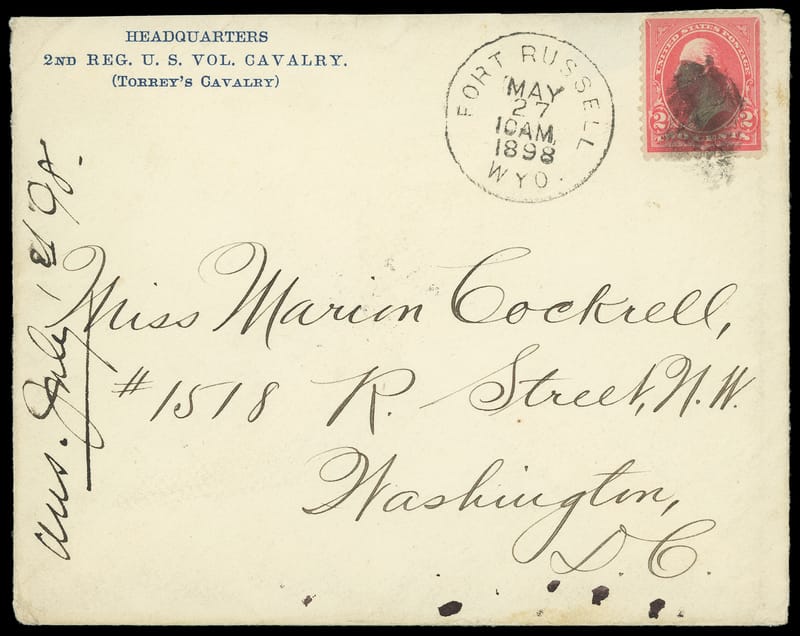 HEADQUARTERS
2ND REG. U. S. VOL. CAVALRY.
(TORREY'S CAVALRY)
FORT RUSSELL
MAY
27
10AM
1898
WYO.
UNITED STATES POSTAGE
2 2
Miss Marion Cockrell,
#1518 R. Street, N.W.
Washington,
D.C.
Ans. July 1st 98.